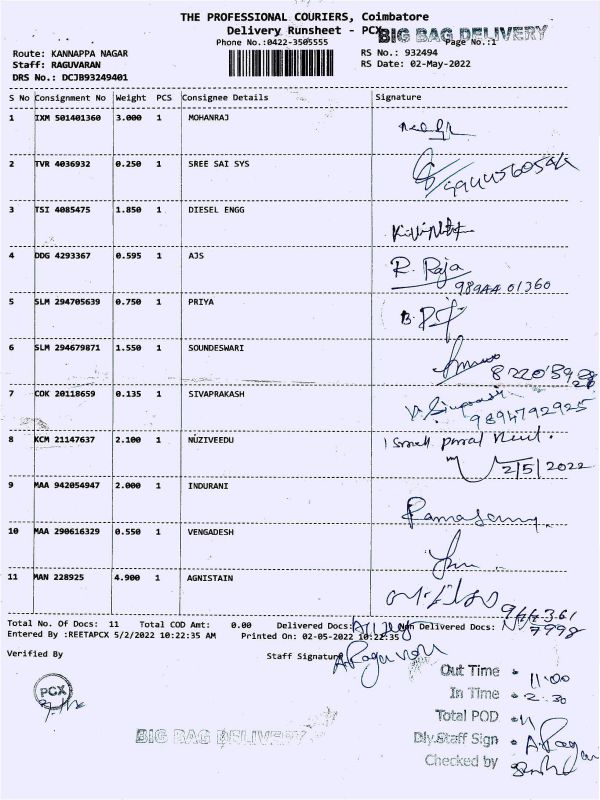 THE PROFESSIONAL COURIERS, Coimbatore
Delivery Runsheet - PCX
BIG BAG DELIVERY
Phone No.:0422-3505555
Page No.:1
Route: KANNAPPA NAGAR
RS No.: 932494
Staff: RAGUVARAN
RS Date: 02-May-2022
DRS No.: DCJB93249401
S No Consignment No Weight PCS Consignee Details Signature
1 IXM 501401360 3.000 1 MOHANRAJ
2 TVR 4036932 0.250 1 SREE SAI SYS
3 TSI 4085475 1.850 1 DIESEL ENGG
4 DDG 4293367 0.595 1 AJS R. Raja
98944 01360
5 SLM 294705639 0.750 1 PRIYA
6 SLM 294679871 1.550 1 SOUNDESWARI
7 COK 20118659 0.135 1 SIVAPRAKASH
9894792925
8 KCM 21147637 2.100 1 NUZIVEEDU 1 Small
2/5/2022
9 MAA 942054947 2.000 1 INDURANI
Ramasamy
10 MAA 290616329 0.550 1 VENGADESH
11 MAN 228925 4.900 1 AGNISTAIN
Total No. Of Docs: 11 Total COD Amt: 0.00 Delivered Docs: Non Delivered Docs:
Entered By :REETAPCX 5/2/2022 10:22:35 AM Printed On: 02-05-2022 10:22:35
Verified By Staff Signature A. Raguvaran
Out Time 11:00
PCX
In Time 2.30
Total POD 11
BIG BAG DELIVERY
Dly.Staff Sign A. Raguvaran
Checked by